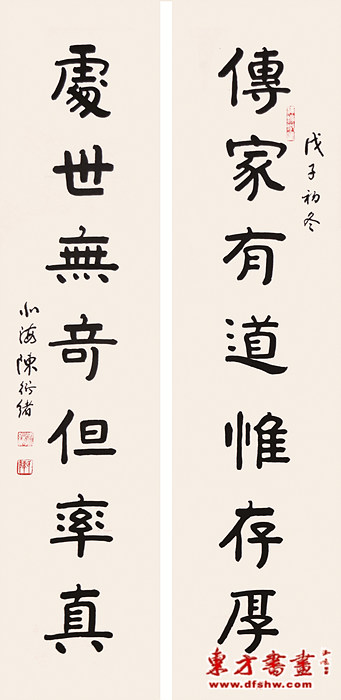 傳家有道惟存厚
戊子初冬
處世無奇但率真
北海陳衍緒
東方書畫
www.dfshw.com